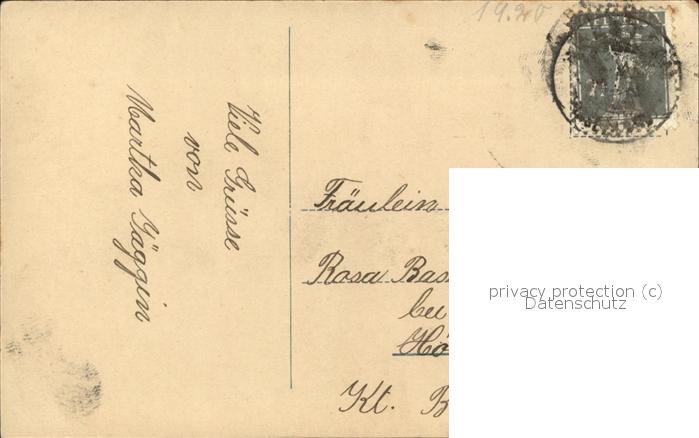 19.20
Viele Grüsse
von
Martha Jäggin
Fräulein
Rosa Bas
bei
Hö
Kt. B
privacy protection (c)
Datenschutz